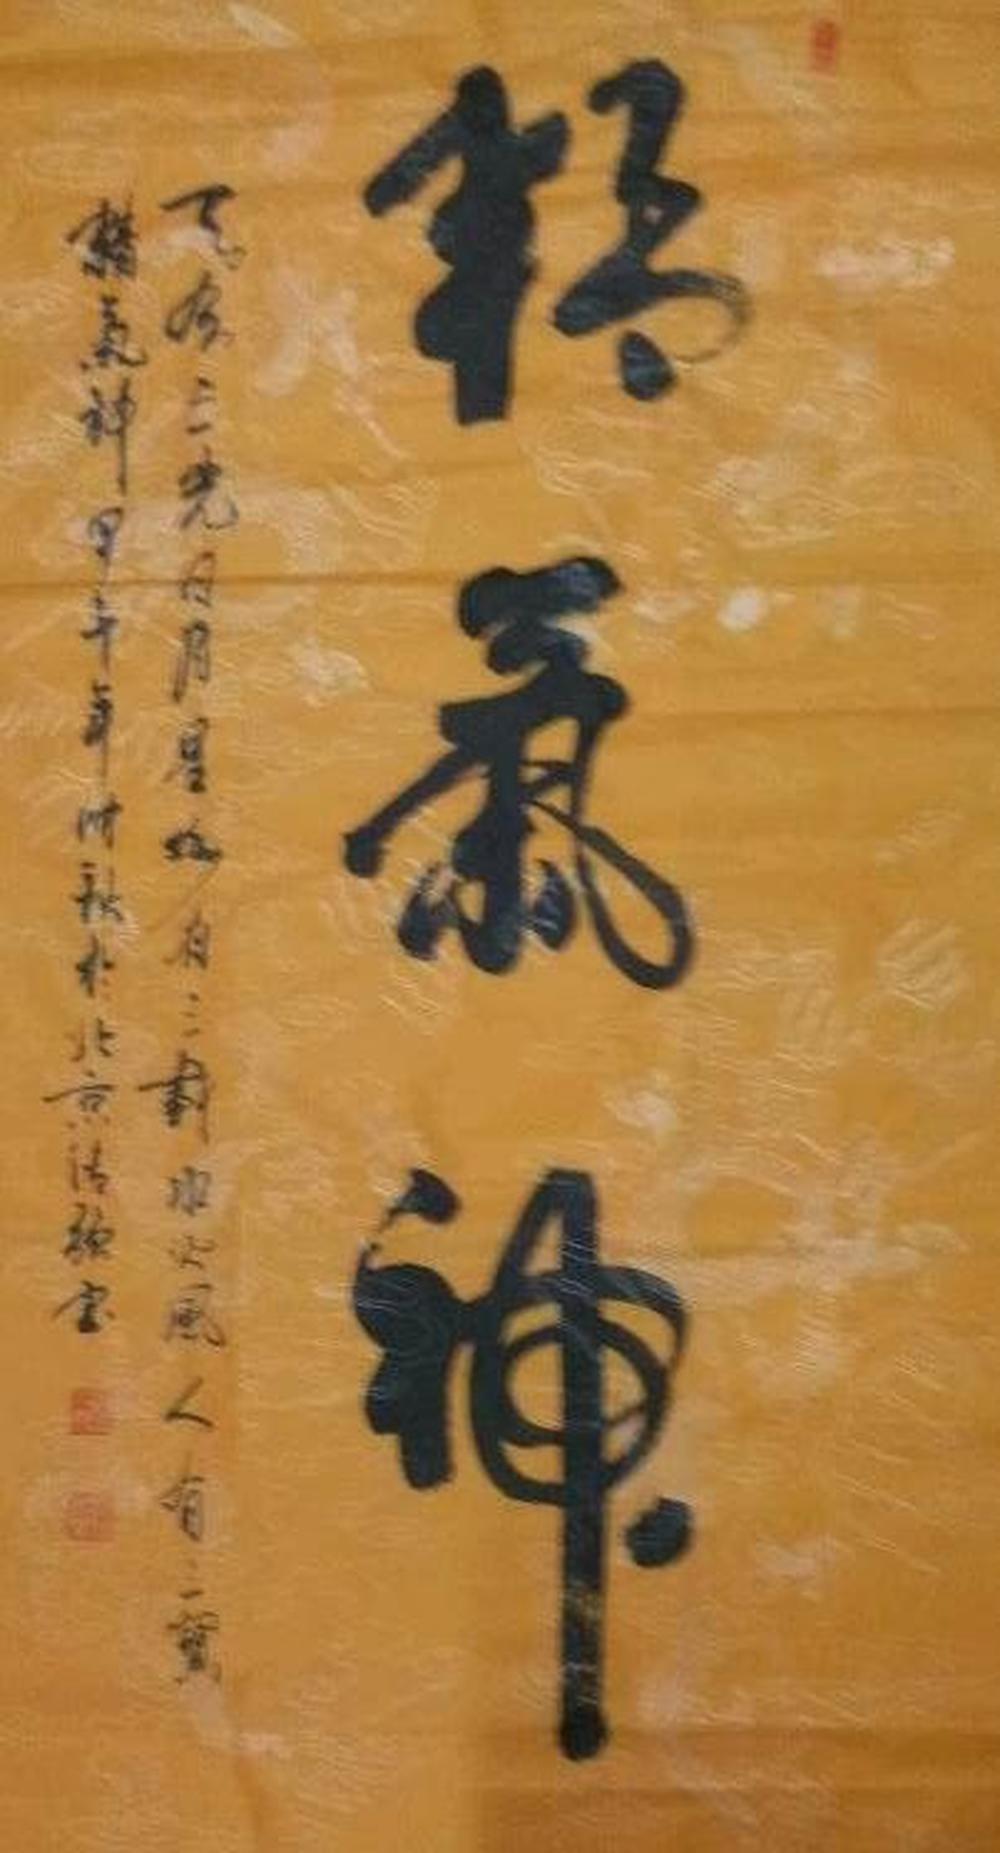 精氣神
天有三光日月星地有三載水火風人有三寶
精氣神甲午年付秋於北京清